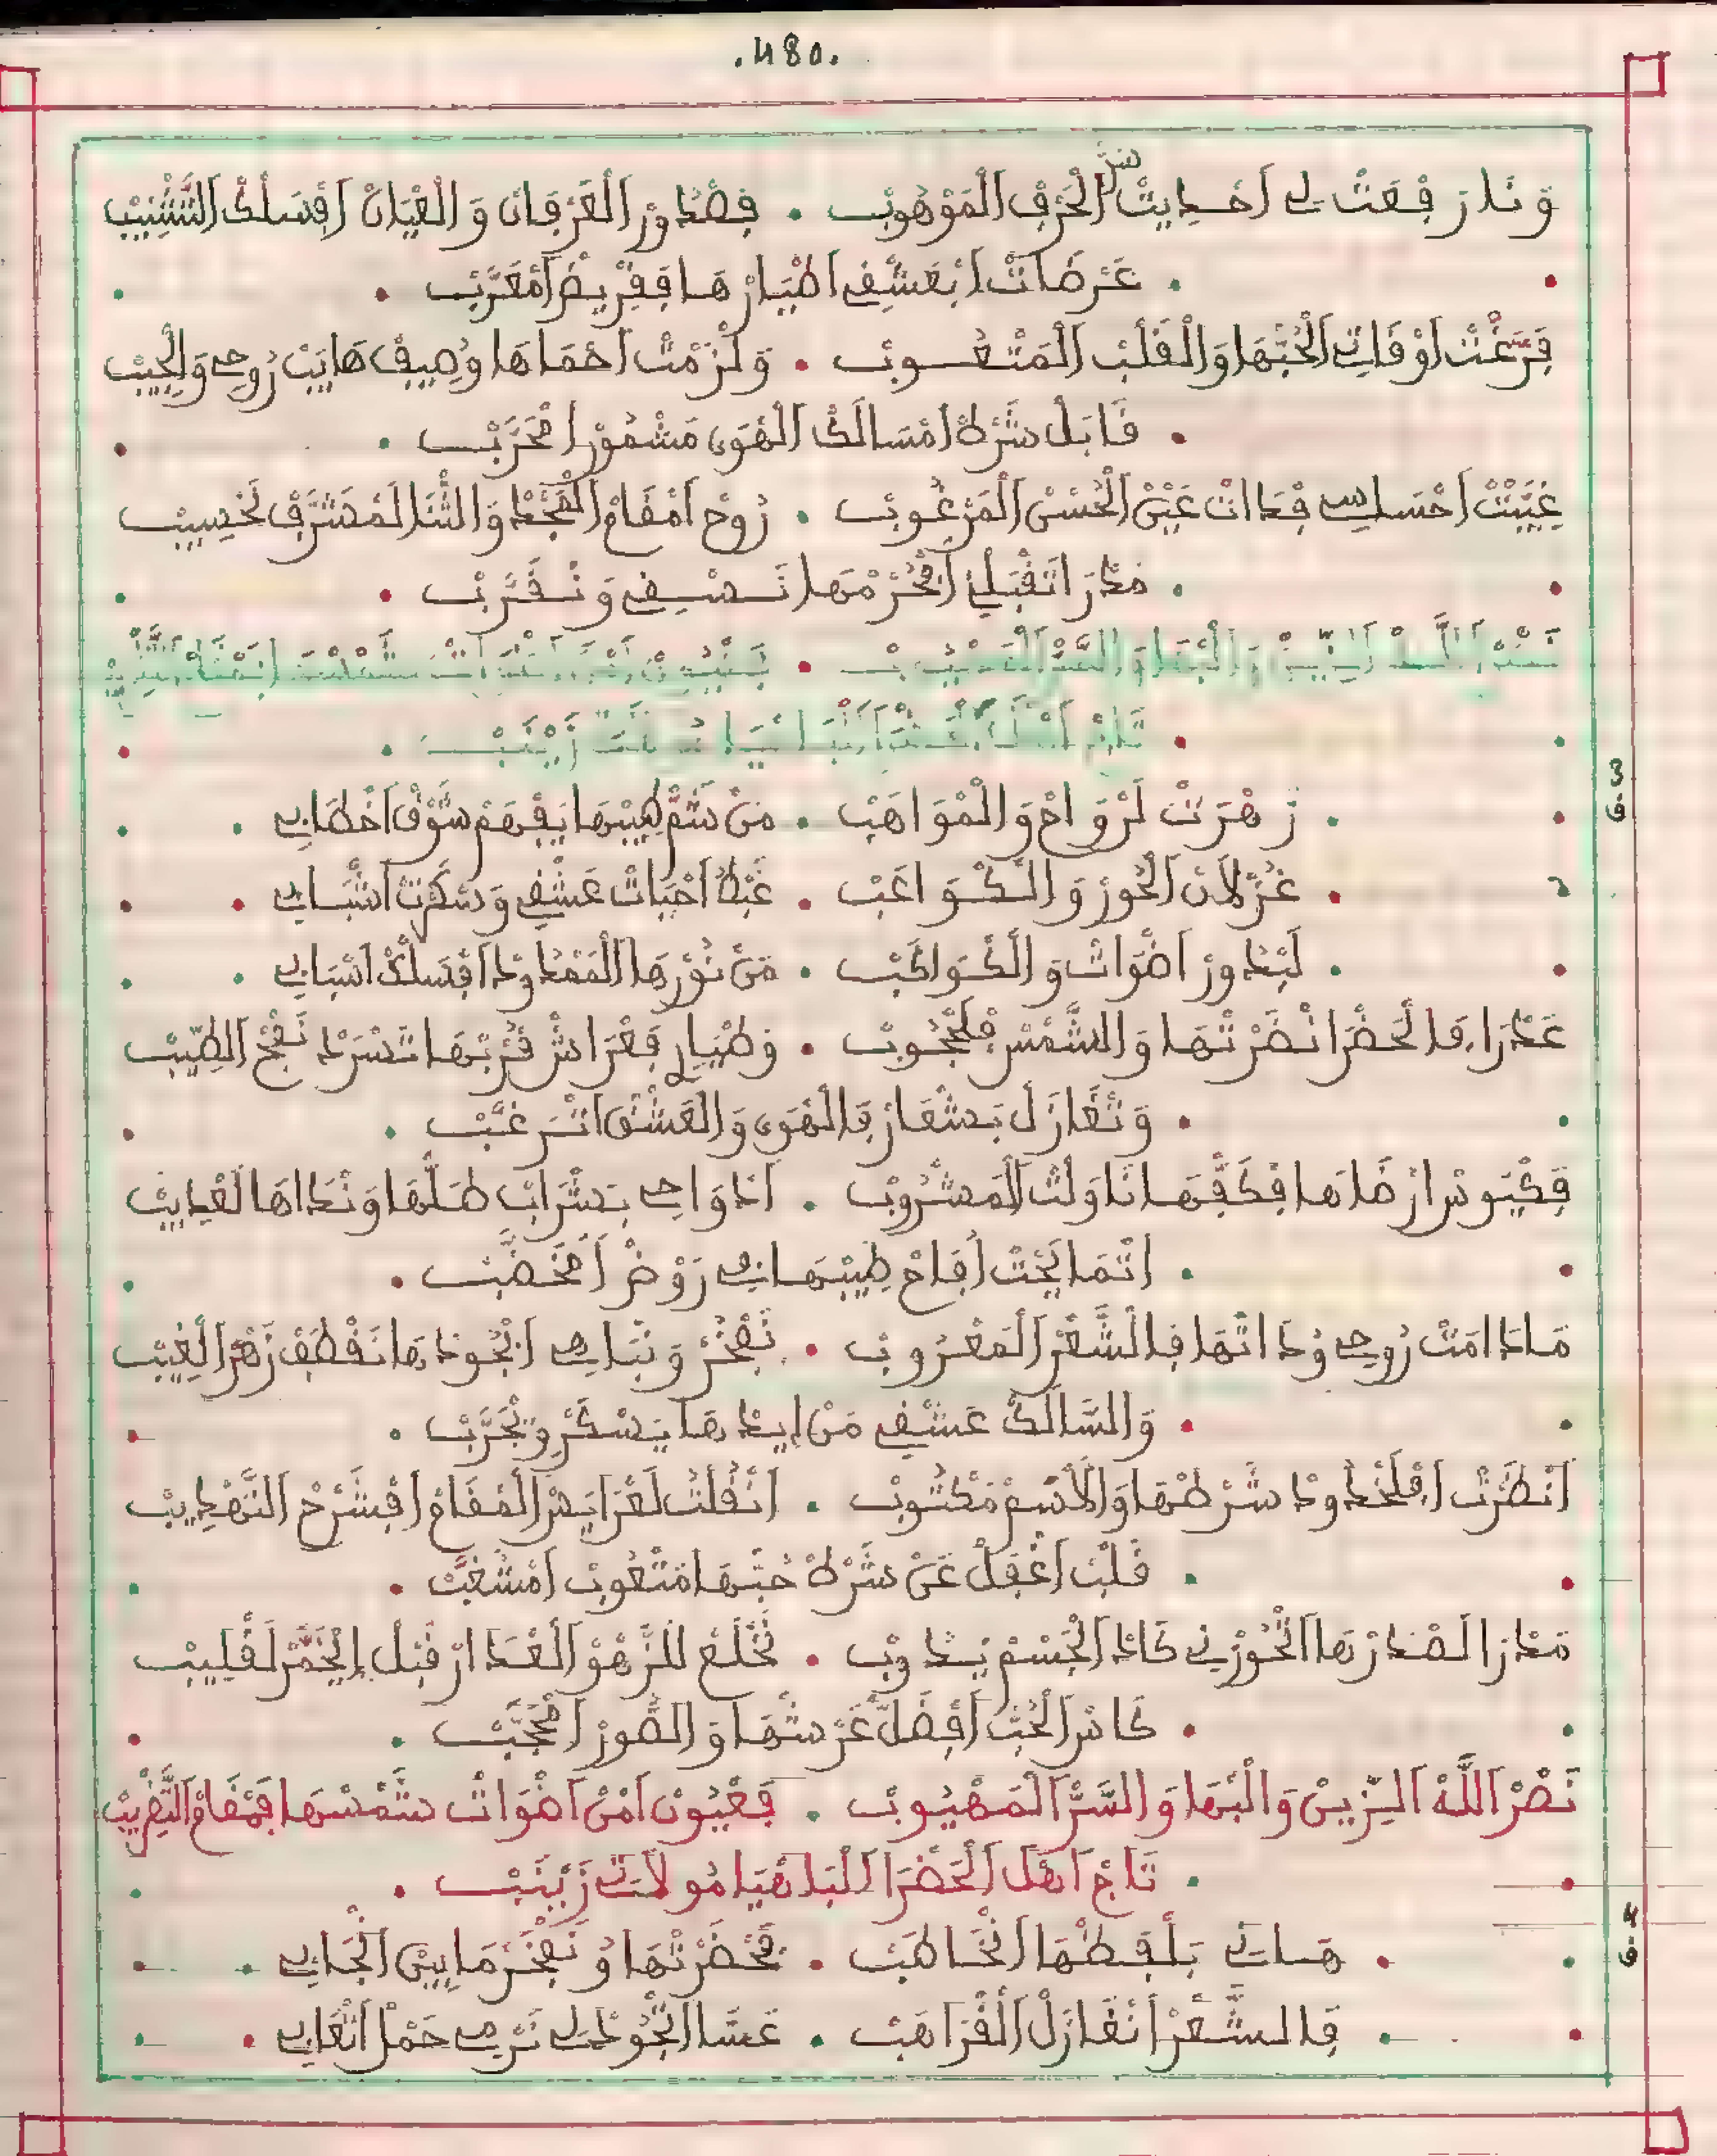 .480.
وَنَارْ رَفْعَتْ لِي اَحْدِيثْ سَرّ الْحَرْفِ الْمَوْهُوبْ . فِصْدُورْ الْعَرْفَانْ وَالْعْيَانْ افْسَلْكْ التَّشْبِيبْ
. عَرْضَاتْ ابْعَشْقِي اطْيَارْهَا فِقْرِيضْ امْعَرَّبْ .
فَرَّغْتْ اوْقَاتِي الْحُبّهَا وَالْقَلْبْ الْمَتْعُوبْ . وَلْزَمْتْ احْمَاهَا وُصِيفْ هَايَبْ رُوحِي وَالْجِيبْ
. قَابَلْ شَرْطْ امْسَالَكْ الْهْوَى مَشْهُورْ امْجَرَّبْ .
غَيَّبْتْ احْسَاسِي فْدَاتْ عَيْنْ الْحُسْنْ الْمَرْغُوبْ . رُوحْ امْقَامْ الْمَجْدْ وَالثّْنَا لَمْشَرَّفْ لَحْسِيبْ
. مَدْرَا تَقْبَلْنِي افْحُرْمْهَا نَسْقِي وَنْقَرَّبْ .
نَصْرْ اللَّهْ الزِّينْ وَالْبْهَا وَالسَّرّْ الْمَهْيُوبْ . فَعْيُونْ امْنْ اضْوَاتْ شَمْسْهَا فَمْقَامْ التَّقْرِيبْ
. تَاجْ اهْلْ الْحَضْرَا اللْبَاهْيَا مُولَاتِي زَيْنَبْ .
ق 3
. زَهْرَتْ لَرْوَاحْ وَالْمْوَاهَبْ . مَنْ شَمّْ طِيبْهَا يَفْهَمْ شَوْقْ اخْطَابِي .
. غُزْلَانْ الْحُورْ وَالْكْوَاعَبْ . عَبْطْ احْيَاتْ عَشْقِي وَسْكَرْتْ اشْبَابِي .
. لَبْدُورْ اضْوَاتْ وَالْكْوَاكَبْ . مَنْ نُورْهَا الْمَمْدُودْ افْسَلْكْ اسْبَابِي .
عَدْرَا فَالْحَضْرَا نْضَرْتْهَا وَالشَّمْسْ فْلَحْجُوبْ . وَطْيَارِي فَعْرَاشْ قُرْبْهَا تَسْرَدْ نَفْحْ الطِّيبْ
. وَتْغَازَلْ بَشْعَارْ فَالْهْوَى وَالْعَشْقْ اتْرَغَّبْ .
فَكْيُوسْ ارْضَاهَا فْكَفّهَا نَاوْلَتْ الْمَشْرُوبْ . ادْوَاحِي بَشْرَابْ طَلّهَا وَنْدَاهَا لَعْدِيبْ
. اتْمَايْحَتْ افَاحْ طِيبْهَا فِي رَوْضْ امْخَصَّبْ .
مَادَامَتْ رُوحِي وُدَاتْهَا فَالشَّعْرْ الْمَعْرُوبْ . نَفْخَرْ وَنْبَاهِي ابْجُودْهَا نَقْطَفْ زَهْرْ الْغِيبْ
. وَالسَّالَكْ عَشْقِي مَنْ ايدْهَا يَسْكَرْ وِيْجَرَّبْ .
انْظَرْتْ افْلَخْدُودْ شَرْطْهَا وَالاسْمْ مَكْتُوبْ . انْقُلْتْ لَعْرَايَسْ الْمْقَامْ افْشَرْحْ التَّهْدِيبْ
. قَلْبْ اغْفَلْ عَنْ شَرْطْ حُبّهَا مَتْعُوبْ امْشَغَّبْ .
مَدْرَا لَصْدَارْهَا الْحُورْنِي كَادْ الْجَسْمْ يْدُوبْ . نَخْلَعْ للزَّهْوْ الْعْدَارْ قْبَلْ الْخَمْرْ لَقْلِيبْ
. كَاسْ الْحُبّ افْضَلّ عَرْشْهَا وَالصُّورْ امْحَجَّبْ .
نَصْرْ اللَّهْ الزِّينْ وَالْبْهَا وَالسَّرّْ الْمَهْيُوبْ . فَعْيُونْ امْنْ اضْوَاتْ شَمْسْهَا فَمْقَامْ التَّقْرِيبْ
. تَاجْ اهْلْ الْحَضْرَا اللْبَاهْيَا مُولَاتِي زَيْنَبْ .
ق 4
. هَانِي بَلْفَظْهَا انْخَاطَبْ . فَحْضَرْتْهَا وُنَفْخَرْ مَابِينْ انْجَابِي .
. فَالشَّعْرْ انْغَازَلْ الْفْرَاهَبْ . عَسَّا اتْجُودْ لِي نَرْمِي حَمْلْ اتْعَابِي .